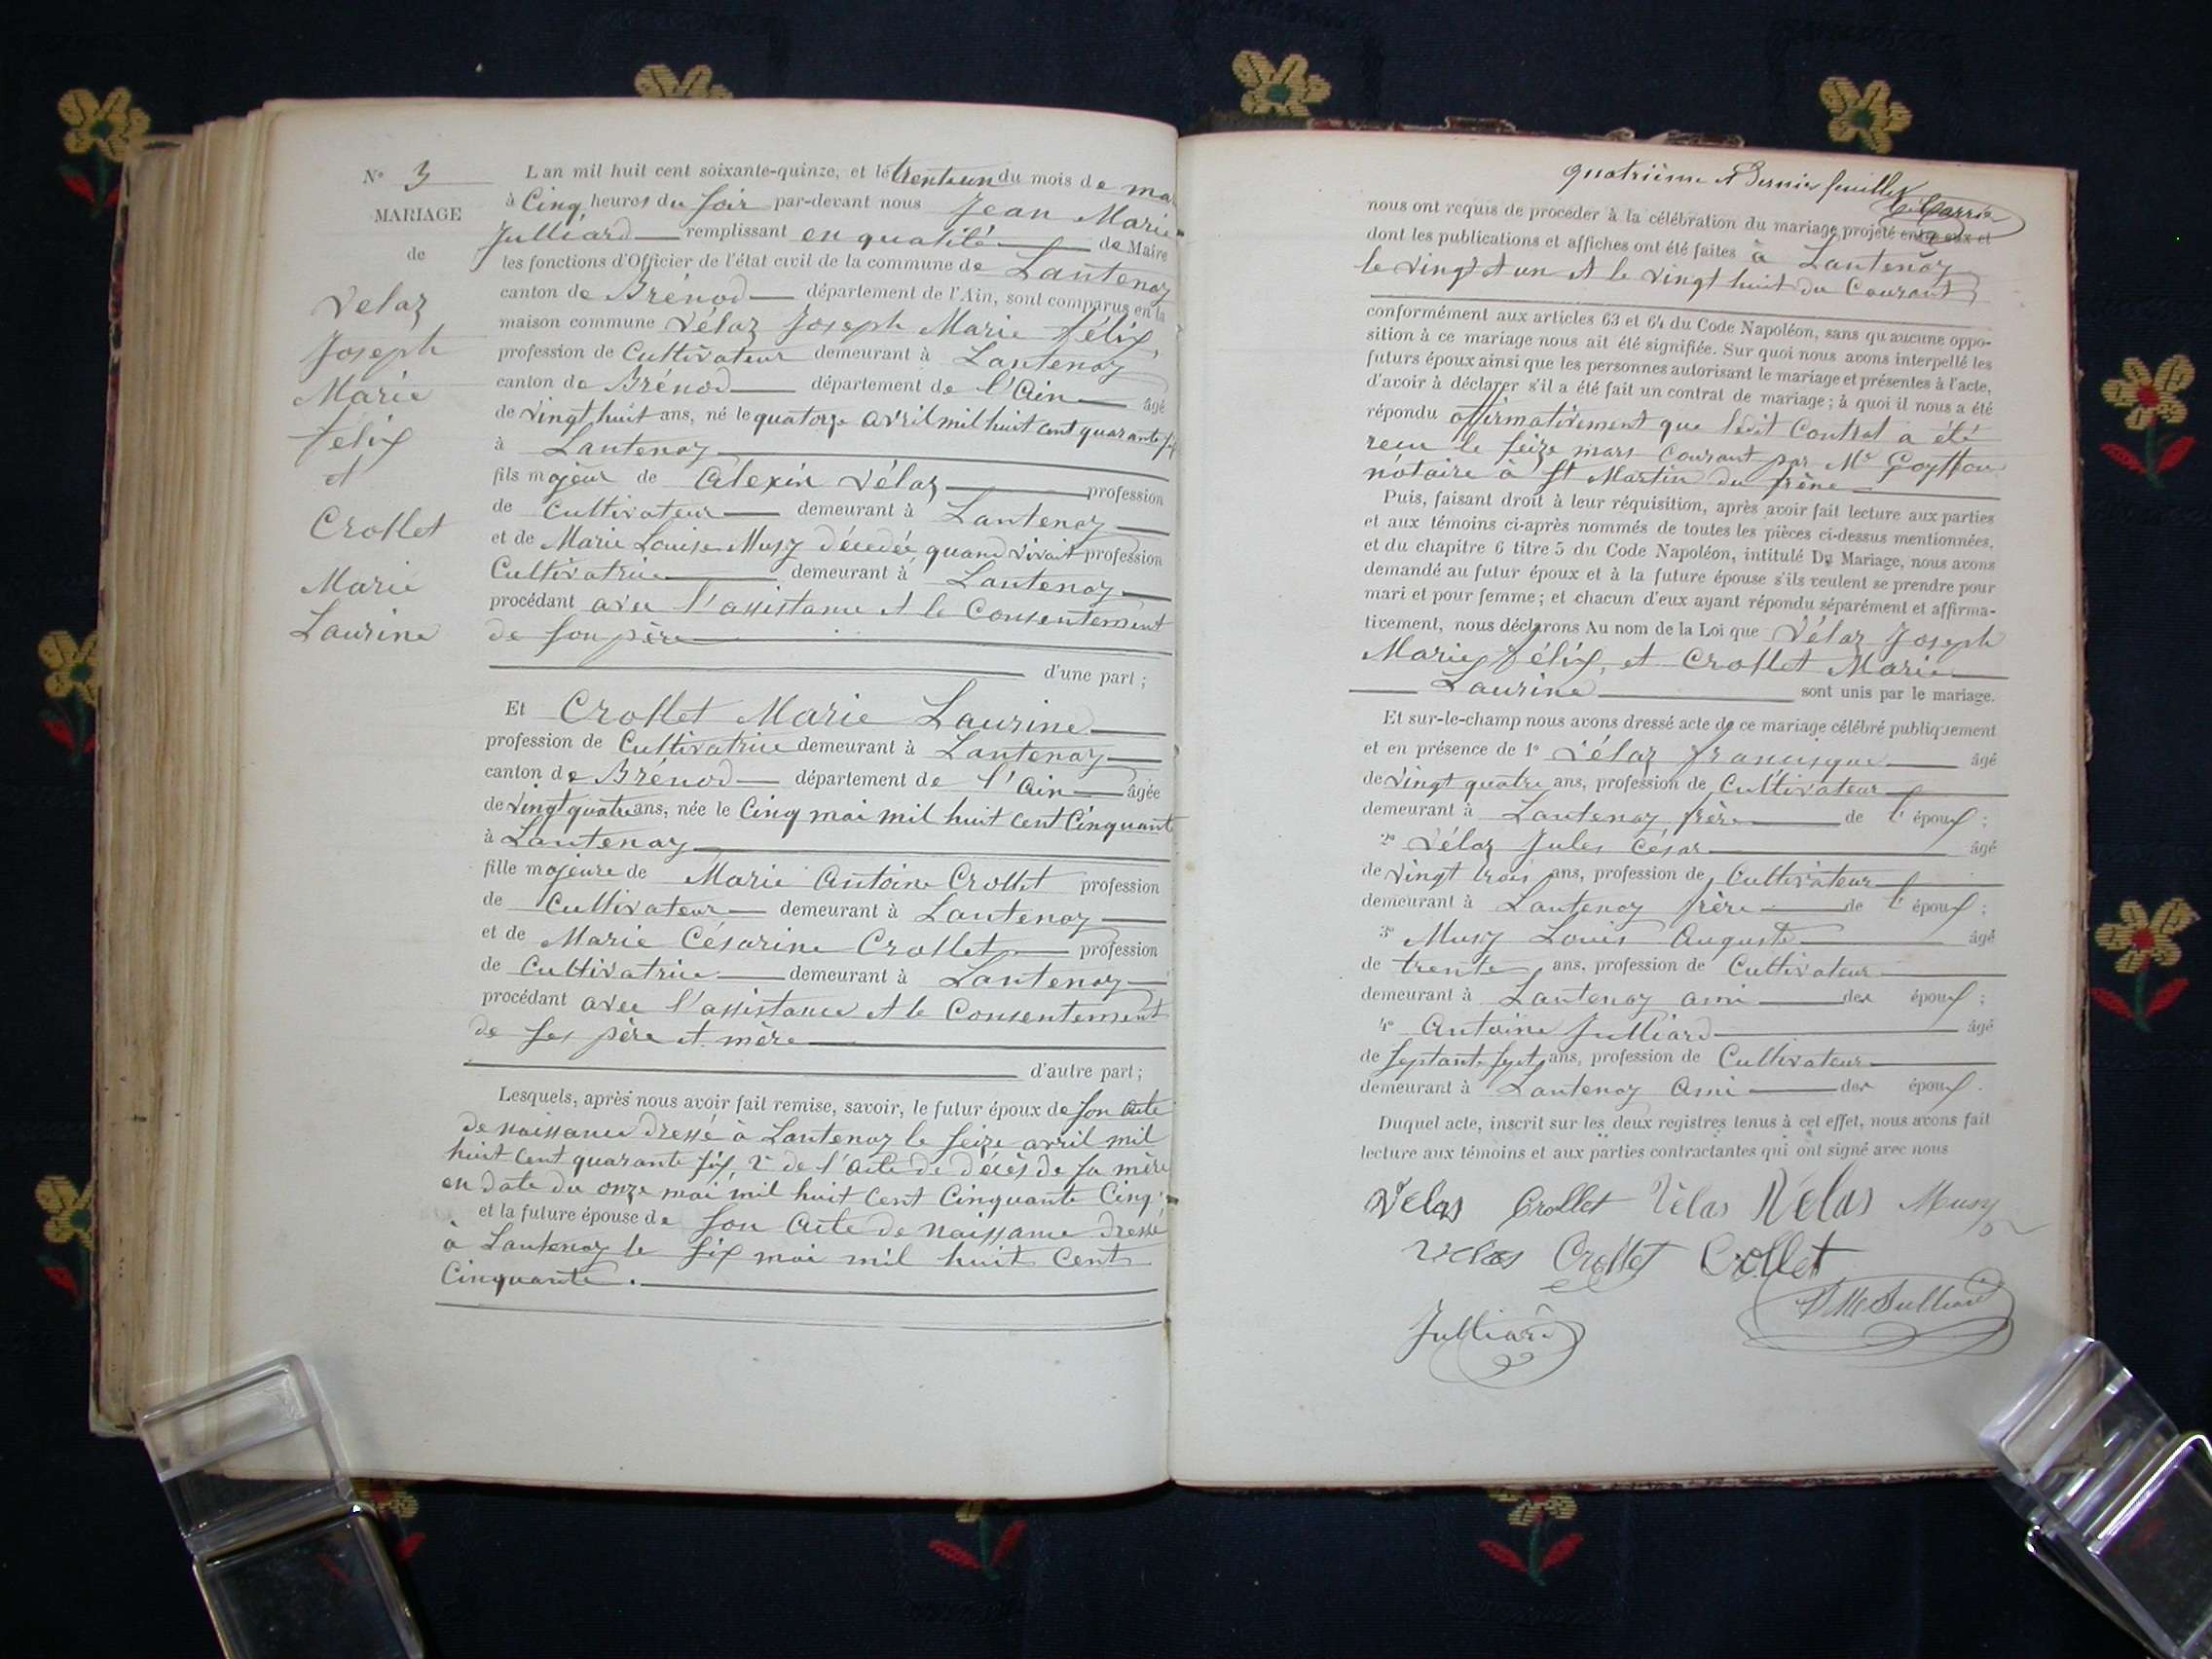 N° 3
MARIAGE
de
Velaz
Joseph
Marie
félix
et
Crollet
Marie
Laurine
L'an mil huit cent soixante-quinze, et le trente un du mois de mar
à Cinq heures du soir par-devant nous Jean Marie
Julliard remplissant en qualité de Maire
les fonctions d'Officier de l'état civil de la commune de Lantenay
canton de Brénod département de l'Ain, sont comparus en la
maison commune Vélaz Joseph Marie félix,
profession de Cultivateur demeurant à Lantenay
canton de Brénod département de l'Ain âgé
de vingt huit ans, né le quatorze avril mil huit cent quarante six
à Lantenay
fils majeur de Alexin Vélaz profession
de Cultivateur demeurant à Lantenay
et de Marie Louise Musy décédée quand vivait profession
Cultivatrice demeurant à Lantenay
procédant avec l'assistance et le Consentement
de son père
d'une part ;
Et Crollet Marie Laurine
profession de Cultivatrice demeurant à Lantenay
canton de Brénod département de l'Ain âgée
de vingt quatre ans, née le Cinq mai mil huit cent Cinquante
à Lantenay
fille majeure de Marie Antoine Crollet profession
de Cultivateur demeurant à Lantenay
et de Marie Césarine Crollet profession
de Cultivatrice demeurant à Lantenay
procédant avec l'assistance et le Consentement
de ses père et mère
d'autre part ;
Lesquels, après nous avoir fait remise, savoir, le futur époux de son acte
de naissance dressé à Lantenay le seize avril mil
huit cent quarante six, 2° de l'acte de décès de sa mère
en date du onze mai mil huit Cent Cinquante Cinq
et la future épouse de son acte de naissance dressé
à Lantenay le six mai mil huit Cent
Cinquante.
quatrième et dernier feuillet
nous ont requis de procéder à la célébration du mariage projeté entre eux et
dont les publications et affiches ont été faites à Lantenay
le vingt et un et le vingt huit du Courant
conformément aux articles 63 et 64 du Code Napoléon, sans qu'aucune oppo-
sition à ce mariage nous ait été signifiée. Sur quoi nous avons interpellé les
futurs époux ainsi que les personnes autorisant le mariage et présentes à l'acte,
d'avoir à déclarer s'il a été fait un contrat de mariage ; à quoi il nous a été
répondu affirmativement que ledit Contrat a été
recu le seize mars Courant par Me
nótaire à St Martin du frène
Puis, faisant droit à leur réquisition, après avoir fait lecture aux parties
et aux témoins ci-après nommés de toutes les pièces ci-dessus mentionnées,
et du chapitre 6 titre 5 du Code Napoléon, intitulé Du Mariage, nous avons
demandé au futur époux et à la future épouse s'ils veulent se prendre pour
mari et pour femme ; et chacun d'eux ayant répondu séparément et affirma-
tivement, nous déclarons Au nom de la Loi que Vélaz Joseph
Marie félix, et Crollet Marie
Laurine sont unis par le mariage.
Et sur-le-champ nous avons dressé acte de ce mariage célébré publiquement
et en présence de 1° Vélaz francisque âgé
de vingt quatre ans, profession de Cultivateur
demeurant à Lantenay frère de l' époux ;
2° Vélaz Jules César âgé
de vingt trois ans, profession de Cultivateur
demeurant à Lantenay frère de l' époux ;
3° Musy Louis Auguste âgé
de trente ans, profession de Cultivateur
demeurant à Lantenay ami des époux ;
4° Antoine Julliard âgé
de septante sept ans, profession de Cultivateur
demeurant à Lantenay ami des époux.
Duquel acte, inscrit sur les deux registres tenus à cet effet, nous avons fait
lecture aux témoins et aux parties contractantes qui ont signé avec nous
Velas Crollet Vélas Vélas Musy
Velas Crollet Crollet
JM Julliard
Julliard